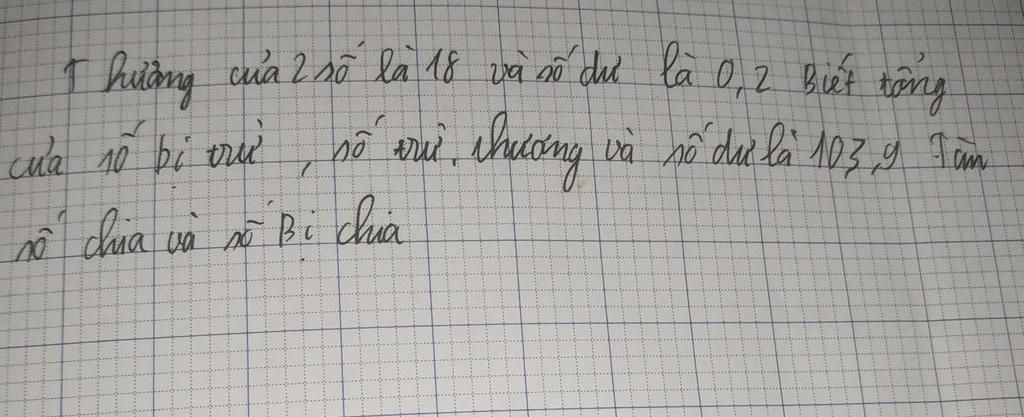 Thương của 2 số là 18 và số dư là 0,2 Biết tổng
của số bị trừ, số trừ, thương và số dư là 103,9 Tìm
số chia và số Bị chia